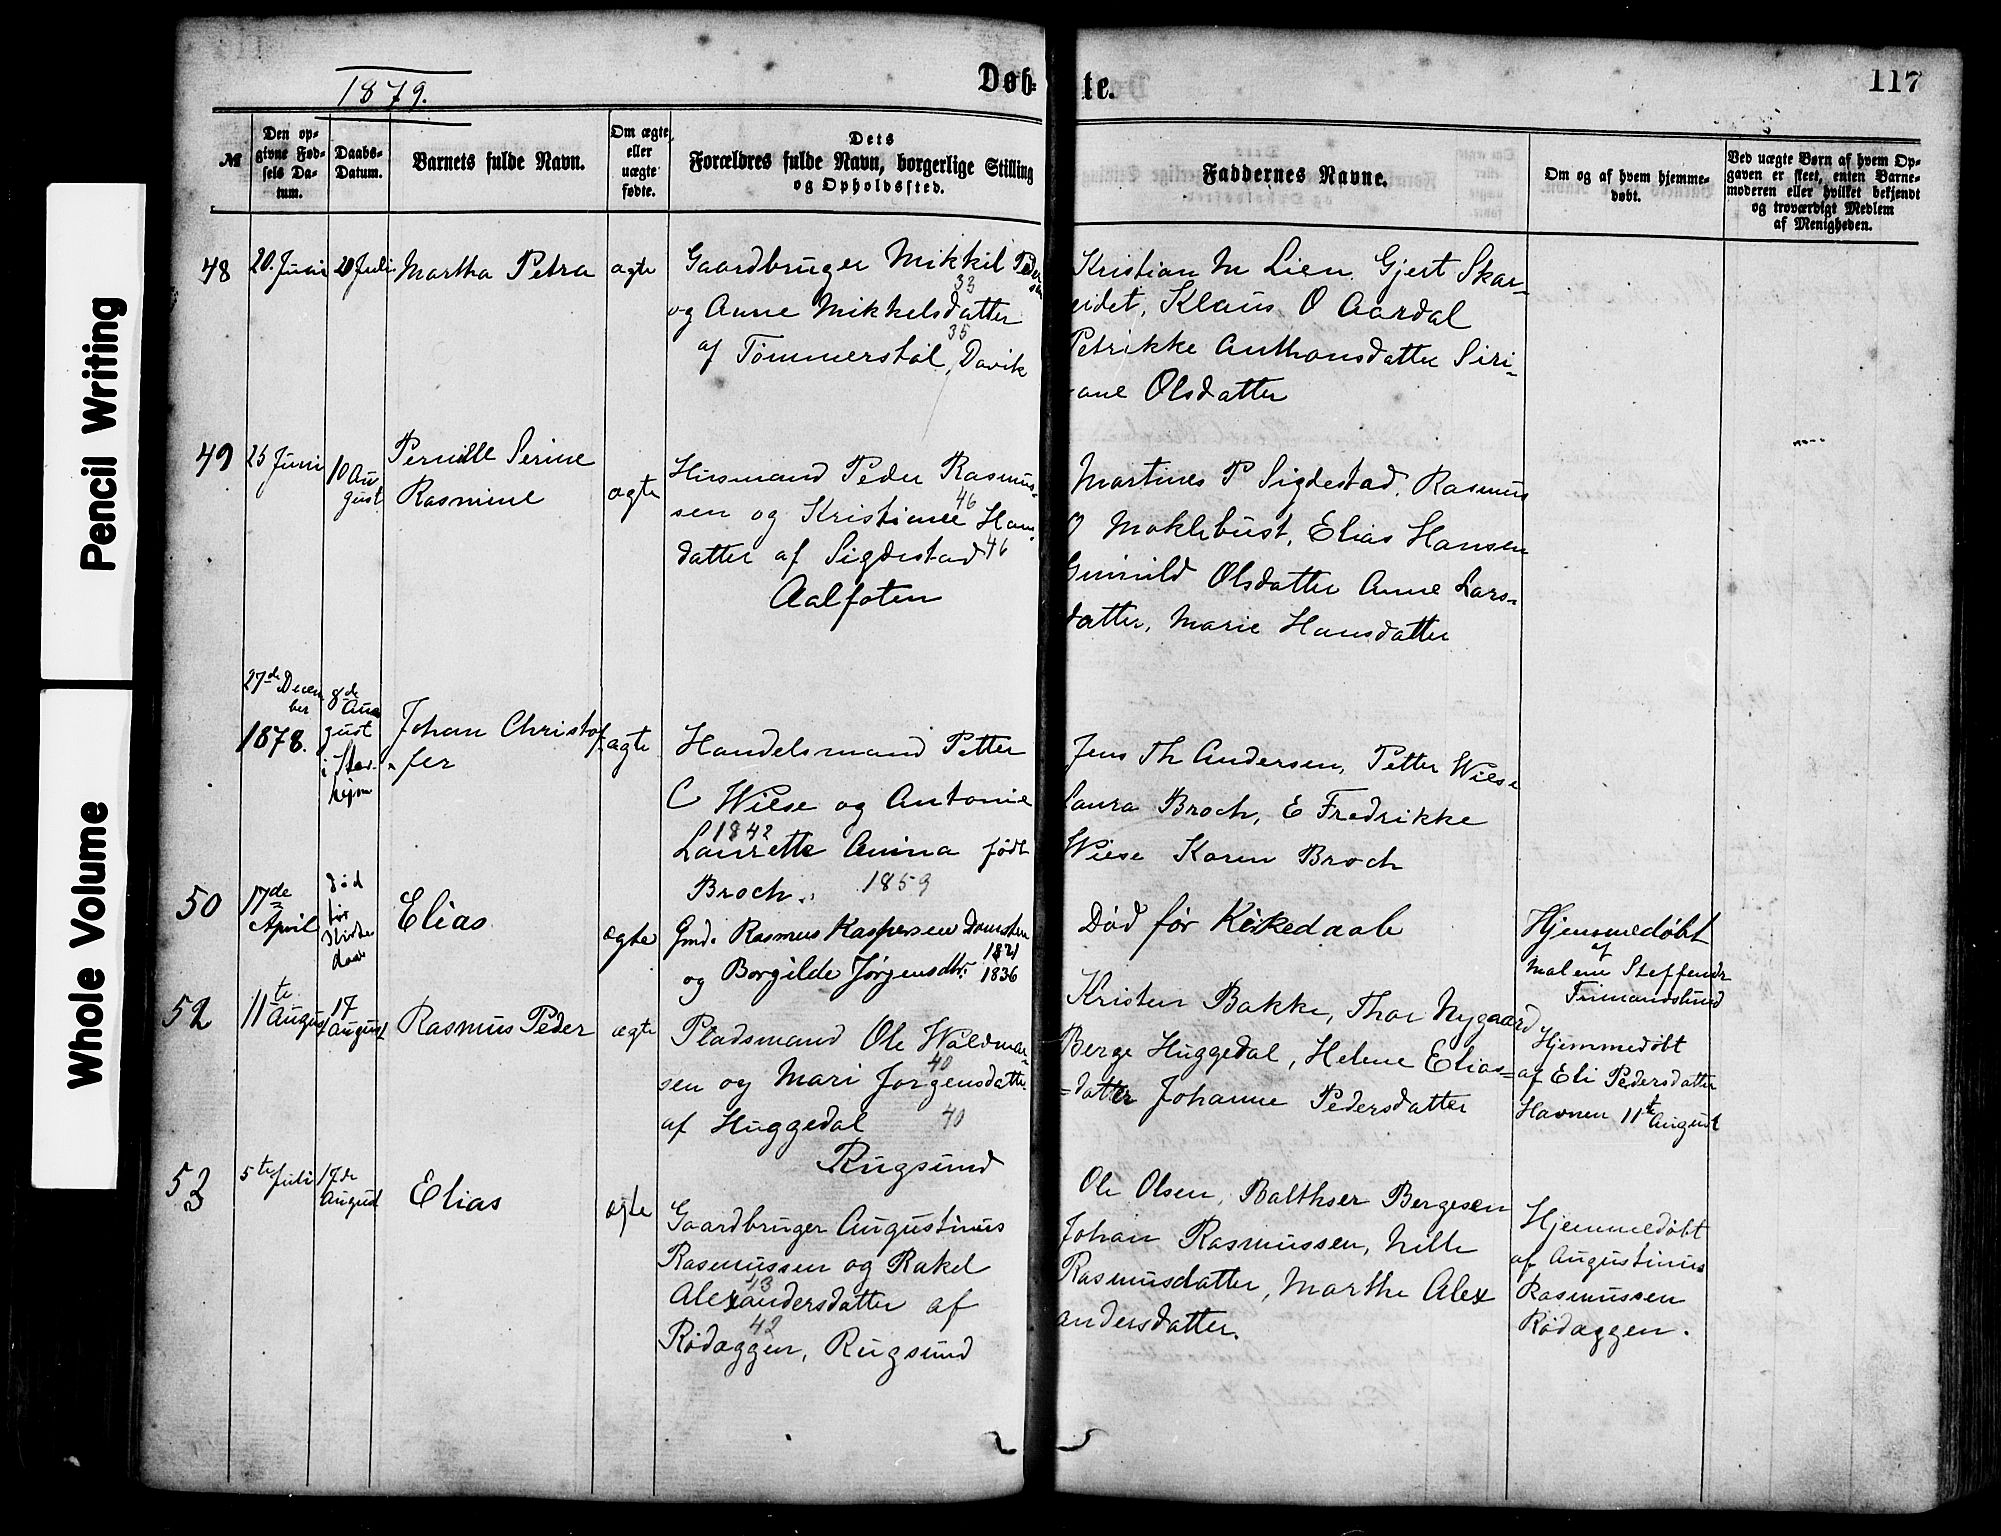 Pencil Writing
Whole Volume
1879.
Døb-
te.
117
№
Den op-
givne Fød-
sels Da-
tum.
Daabs-
Datum.
Barnets fulde Navn.
Om ægte
eller
uægte
fødte.
Dets
Forældres fulde Navn, borgerlige Stilling
og Opholdssted.
Faddernes Navne.
Om og af hvem hjemme-
døbt.
Ved uægte Børn af hvem Op-
gaven er skeet, enten Barne-
moderen eller hvilket bekjendt
og troværdigt Medlem
af Menigheden.
48
20. Juni
20 Juli
Martha Petra
ægte
Gaardbruger Mikkel Peder
sen
33
og Anne Mikkelsdatter
35
af Tømmerstøl, Davik
Kristian M Lien. Gjert Skar-
eidet, Klaus O Aardal
Petrikke Anthonsdatter Siri-
ane Olsdatter
49
25 Juni
10 Au
gust
Pernille Serine
Rasmine
ægte
Husmand Peder Rasmus-
46
sen og Kristianne Hans
datter af Sigdestad 46
Aalfoten
Martines P Sigdestad. Rasmus
O Moklebust, Elias Hansen
Gunnild Olsdatter Anne Lars-
datter, Marie Hansdatter
27de Decem
ber
1878.
8de
Au
gust
i
Johan Christof
fer
ægte
Handelsmand Petter
C Wiese og Antonie
1842
Laurette Anina født
Broch. 1859
Jens Th Andersen, Petter Wiese
Laura Broch, E Fredrikke
Wiese Karen Broch
50
17de
April
død
før
Kirke
daab
Elias
ægte
Gmd. Rasmus Kaspersen Domsten
1821
og Borgilde Jørgensdtr. 1836
Død før Kirkedaab
Hjemmedøbt
af
Malene Steffensdr
52
11te
August
17
August
Rasmus Peder
ægte
Pladsmand Ole Waldmar-
40
sen og Mari Jørgensdatter
af Huggedal 40
Rugsund
Kristen Bakke, Thor Nygaard
Berge Huggedal, Helene Elias-
-datter Johanne Pedersdatter
Hjemmedøbt
af Eli Pedersdatter
Havnen 11te August
53
5te Juli
17de
August
Elias
ægte
Gaardbruger Augustinus
Rasmussen og Rakel
43
Alexandersdatter af
42
Rødæggen, Rugsund
Ole Olsen, Balthser Bergesen
Johan Rasmussen, Nille
Rasmusdatter, Marthe Alex
andersdatter.
Hjemmedøbt
af Augustinus
Rasmussen
Rødæggen.